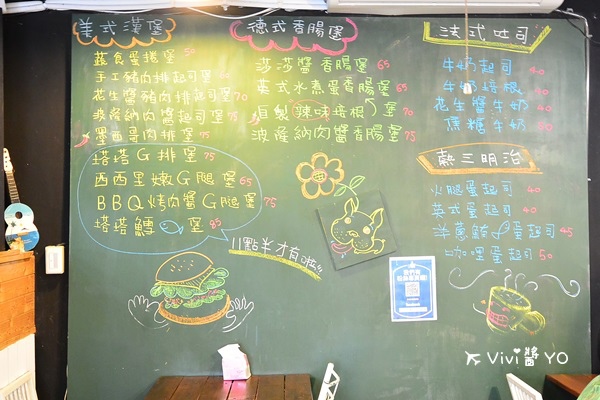 美式漢堡
蔬食蛋捲堡 50
手工豬肉排起司堡 60
花生醬豬肉排起司堡 70
波隆納肉醬起司堡 75
墨西哥肉排堡 75
塔塔G排堡 75
西西里嫩G腿堡 65
BBQ烤肉醬G腿堡 75
塔塔鱈堡 85
11點半才有啦
德式香腸堡
莎莎醬香腸堡 65
英式水煮蛋香腸堡 65
自製辣味培根堡 70
波隆納肉醬香腸堡 75
法式吐司
牛奶起司 40
牛奶培根 40
花生醬牛奶 40
焦糖牛奶 50
熱三明治
火腿蛋起司 40
英式蛋起司 40
洋蔥鮪蛋起司 45
咖哩蛋起司 50
Vivi醬YO